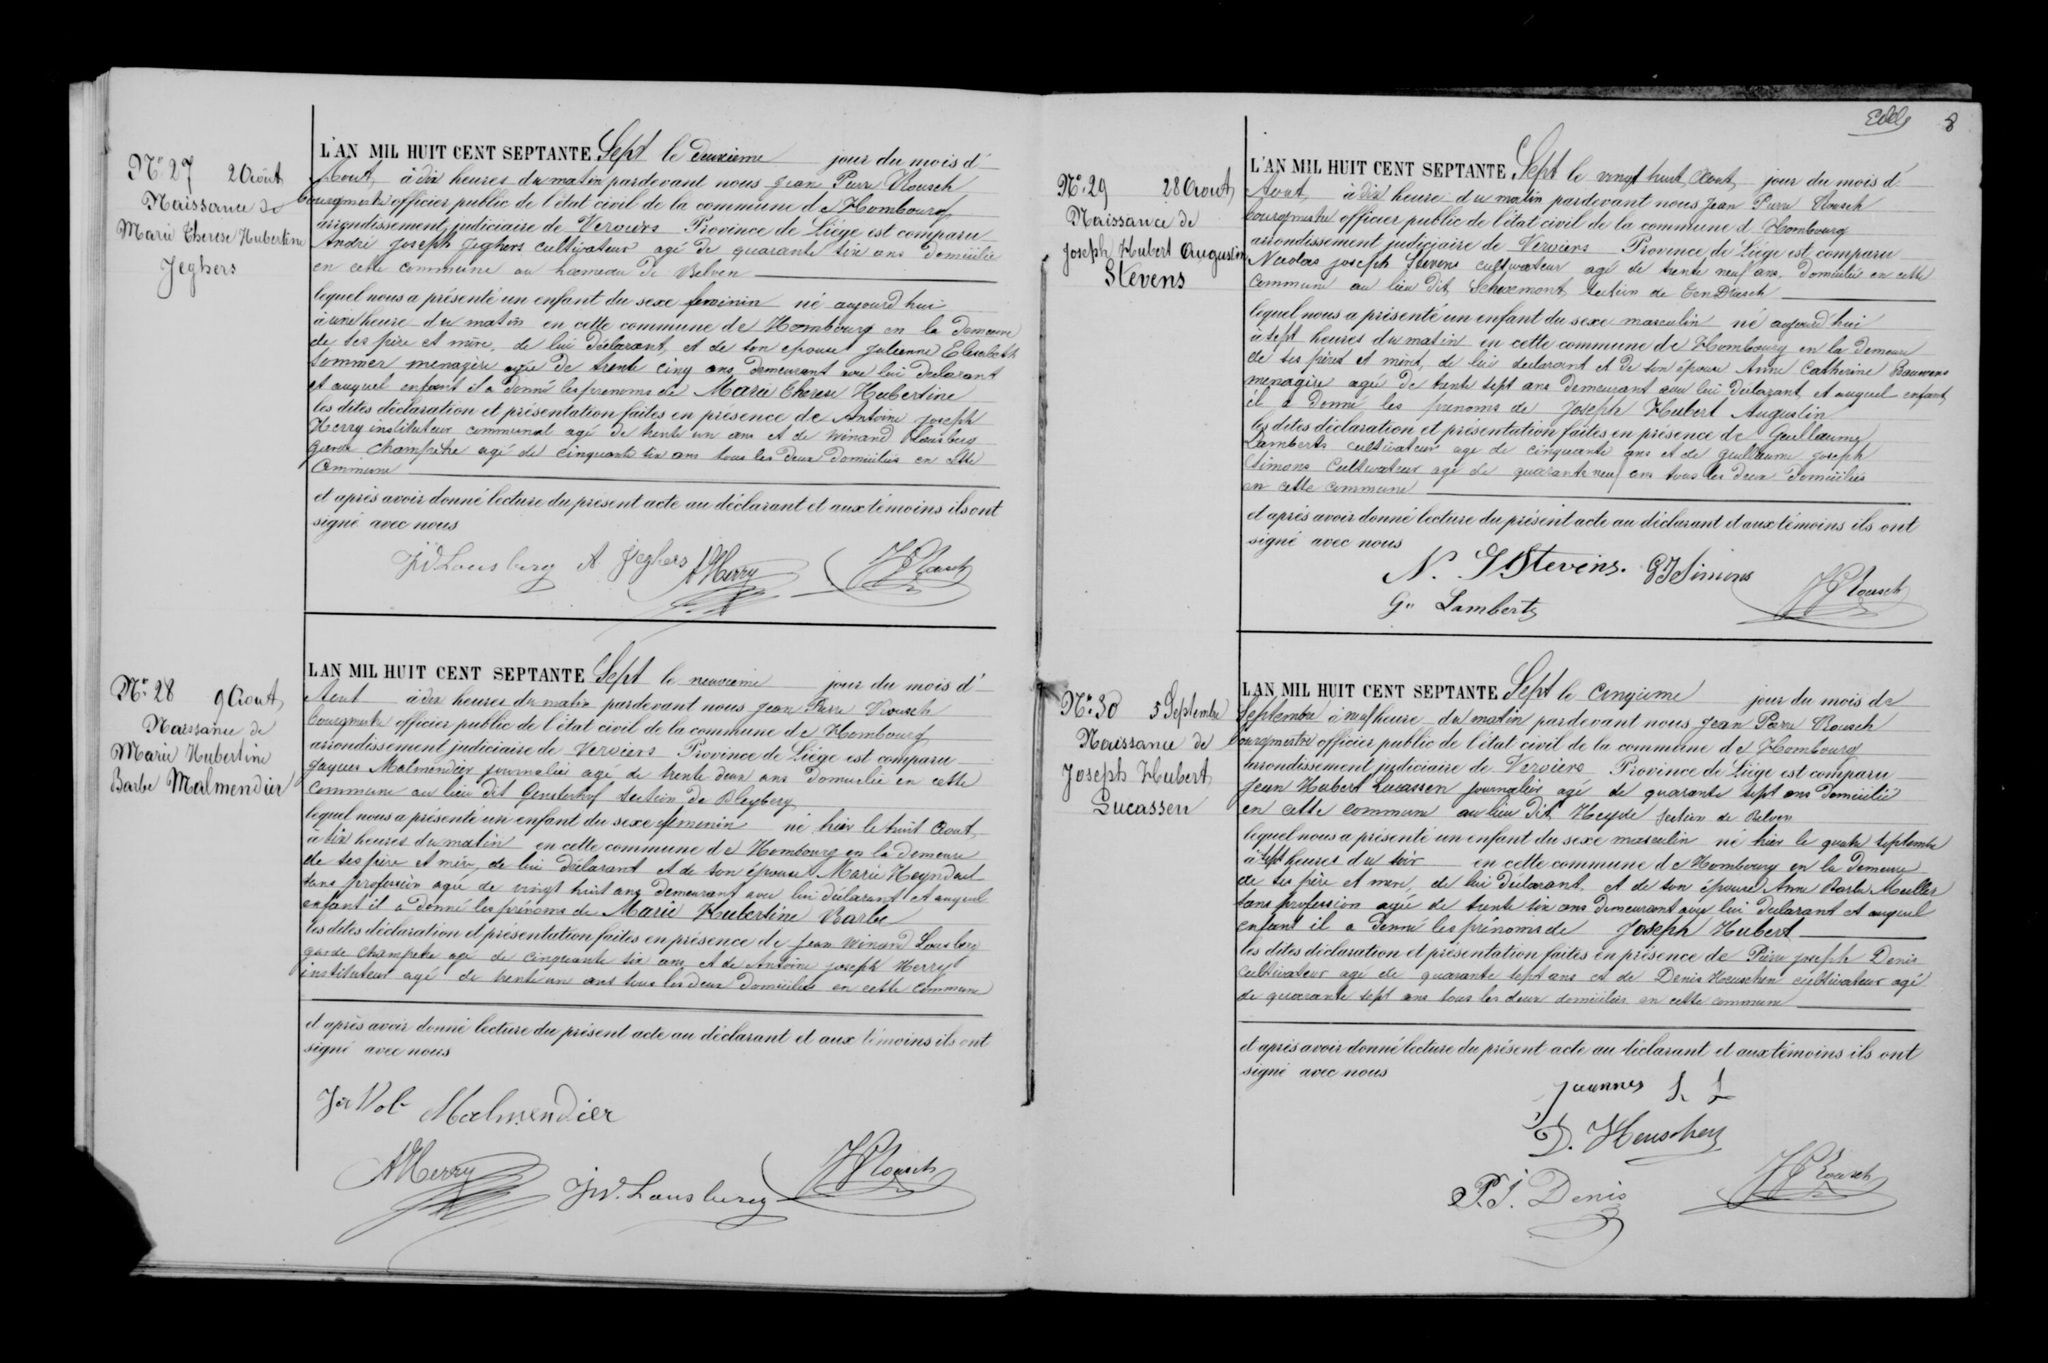 N° 27 2 Août
Naissance de
Marie Therese Hubertine
Jeghers
L'AN MIL HUIT CENT SEPTANTE Sept le deuxieme jour du mois d'
Aout, à dix heures du matin pardevant nous Jean Pierre Rousch
bourgmestre officier public de l'état civil de la commune de Hombourg
arrondissement judiciaire de Verviers Province de Liége est comparu
André Joseph Jeghers cultivateur agé de quarante six ans domicilié
en cette commune au hameau de Belven
lequel nous a présenté un enfant du sexe feminin né aujourd'hui
à une heure du matin en cette commune de Hombourg en la demeure
de ses père et mère, de lui déclarant, et de son epouse Julienne Elisabeth
Sommer menagère agée de trente cinq ans, demeurant avec lui declarant
et auquel enfant il a donné les prenoms de Marie Therese Hubertine
les dites déclaration et présentation faites en présence de Antoine Joseph
Herry instituteur communal agé de trente un ans et de Winand Lousberg
garde champêtre agé de cinquante six ans tous les deux domiciliés en cette
Commune
et après avoir donné lecture du présent acte au déclarant et aux témoins ils ont
signé avec nous
JW Lousberg A Jeghers AHerry JPRousch
N° 28 9 Aout
Naissance de
Marie Hubertine
Barbe Malmendier
L'AN MIL HUIT CENT SEPTANTE Sept le neuvieme jour du mois d'
Aout à dix heures du matin pardevant nous Jean Pierre Rousch
bourgmestre officier public de l'état civil de la commune de Hombourg
arrondissement judiciaire de Verviers Province de Liége est comparu
Jaques Malmendier journalier agé de trente deux ans domicilié en cette
commune au lieu dit section de Bleyberg
lequel nous a présenté un enfant du sexe feminin né hier le huit Aout
à dix heures du matin en cette commune de Hombourg en la demeure
de ses père et mère, de lui déclarant et de son épouse Marie
sans profession agée de vingt huit ans demeurant avec lui déclarant et auquel
enfant il a donné les prénoms de Marie Hubertine Barbe
les dites déclaration et présentation faites en présence de Jean Winand Lousberg
garde champetre agé de cinquante six ans et de Antoine Joseph Herry
instituteur agé de trente un ans tous les deux domiciliés en cette commune
et après avoir donné lecture du présent acte au déclarant et aux témoins ils ont
signé avec nous
Malmendier
AHerry JW. Lousberg JPRousch
8
N° 29 28 Aout
Naissance de
Joseph Hubert Augustin
Stevens
L'AN MIL HUIT CENT SEPTANTE Sept le vingt huit Aout jour du mois d'
Aout, à dix heure du matin pardevant nous Jean Pierre Rousch
bourgmestre officier public de l'état civil de la commune d Hombourg
arrondissement judiciaire de Verviers Province de Liége est comparu
Nicolas Joseph Stevens cultivateur agé de trente neuf ans, domicilié en cette
commune au lieu dit, section de
lequel nous a présenté un enfant du sexe masculin né aujourd'hui
à sept heures du matin en cette commune de Hombourg en la demeure
de ses pères et mère, de lui declarant et de son épouse Anne Catherine
menagère agée de trente sept ans demeurant avec lui déclarant, et auquel enfant
il a donné les prenoms de Joseph Hubert Augustin
les dites déclaration et présentation faites en présence de Guillaume
Lamberts cultivateur age de cinquante ans et de Guillaume Joseph
Simons cultivateur agé de quarante neuf ans tous les deux domiciliés
en cette commune
et après avoir donné lecture du présent acte au déclarant et aux témoins ils ont
signé avec nous
N. J Stevens. GJ Simons JPRousch
Gu Lamberts
N° 30 5 Septembre
Naissance de
Joseph Hubert
Lucassen
L'AN MIL HUIT CENT SEPTANTE Sept le cinquieme jour du mois de
Septembre à neuf heure du matin pardevant nous Jean Pierre Rousch
bourgmestre officier public de l'état civil de la commune de Hombourg
arrondissement judiciaire de Verviers Province de Liége est comparu
Jean Hubert Lucassen journalier agé de quarante sept ans domicilié
en cette commune au lieu dit, Heyde section de Belven
lequel nous a présenté un enfant du sexe masculin né hier le quatre septembre
à sept heures du soir en cette commune de Hombourg en la demeure
de ses père et mère, de lui déclarant. et de son épouse Anne Barbe Muller
sans profession agée de trente six ans demeurant avec lui declarant et auquel
enfant il a donné les prénoms de Joseph Hubert
les dites déclaration et présentation faites en présence de Pierre Joseph Denis
cultivateur agé de quarante sept ans et de Denis Heuschen cultivateur agé
de quarante sept ans tous les deux domiciliés en cette commune
et après avoir donné lecture du présent acte au déclarant et aux témoins ils ont
signé avec nous
D. Heuschen
P.J. Denis JPRousch